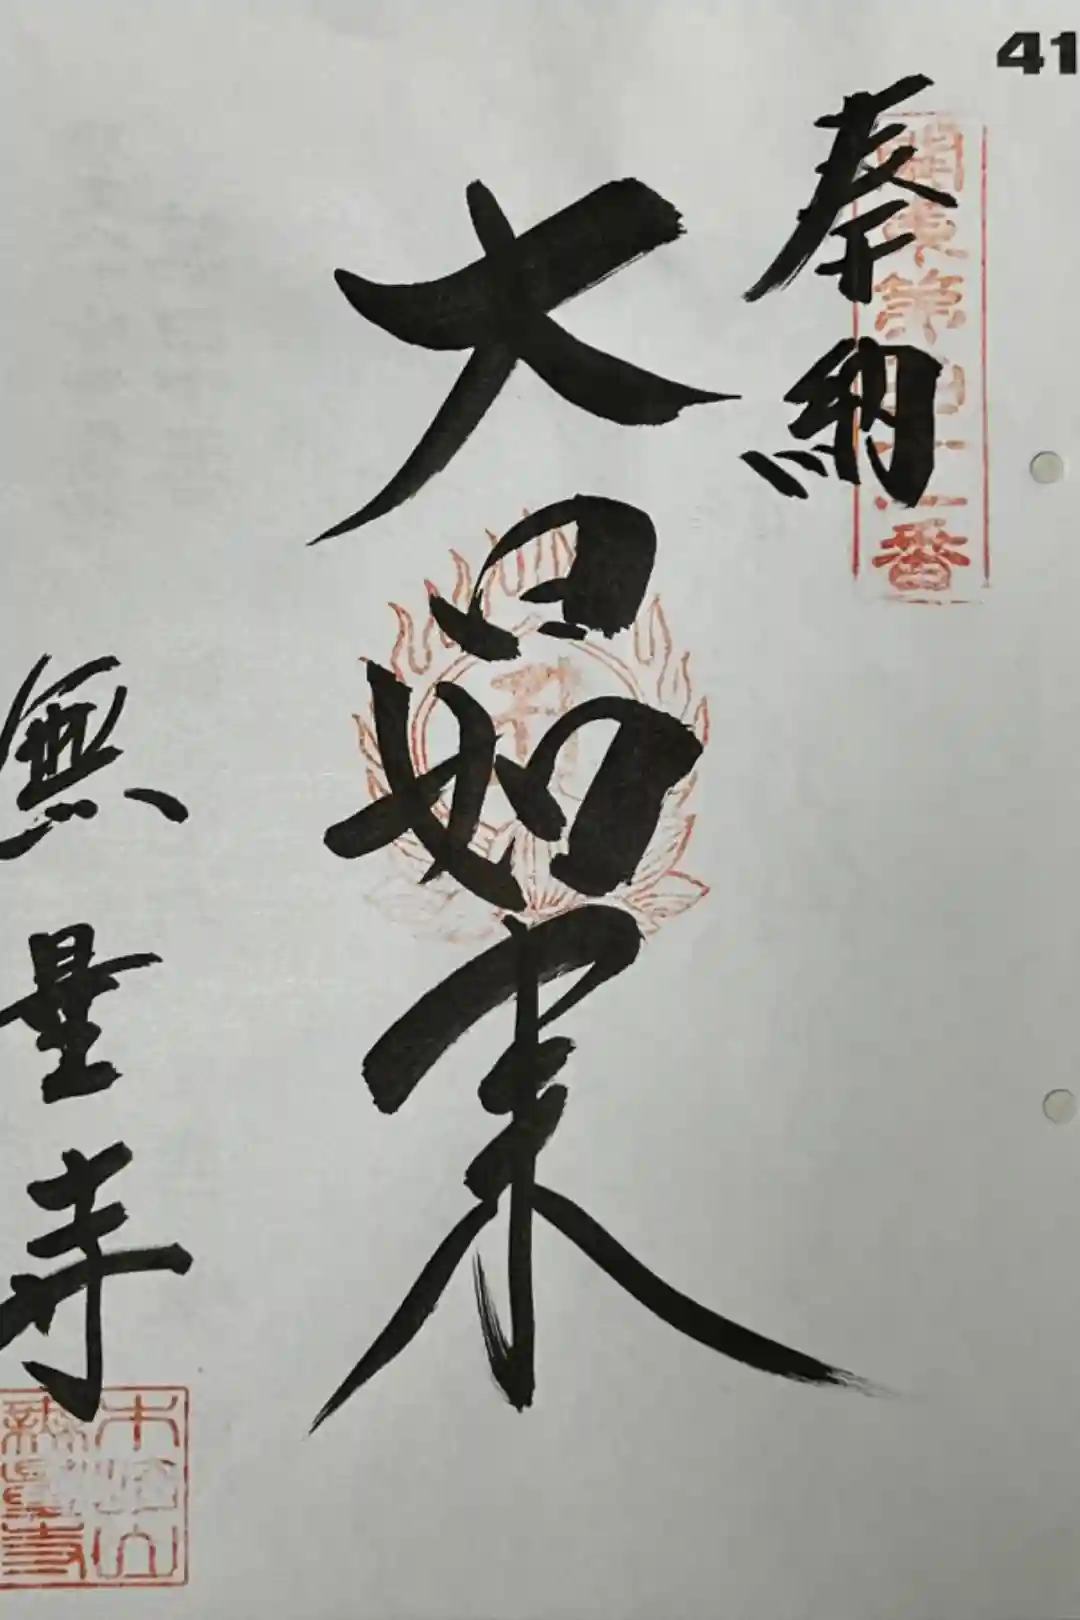 41
奉納
関東第四十一番
大日如来
無量寺